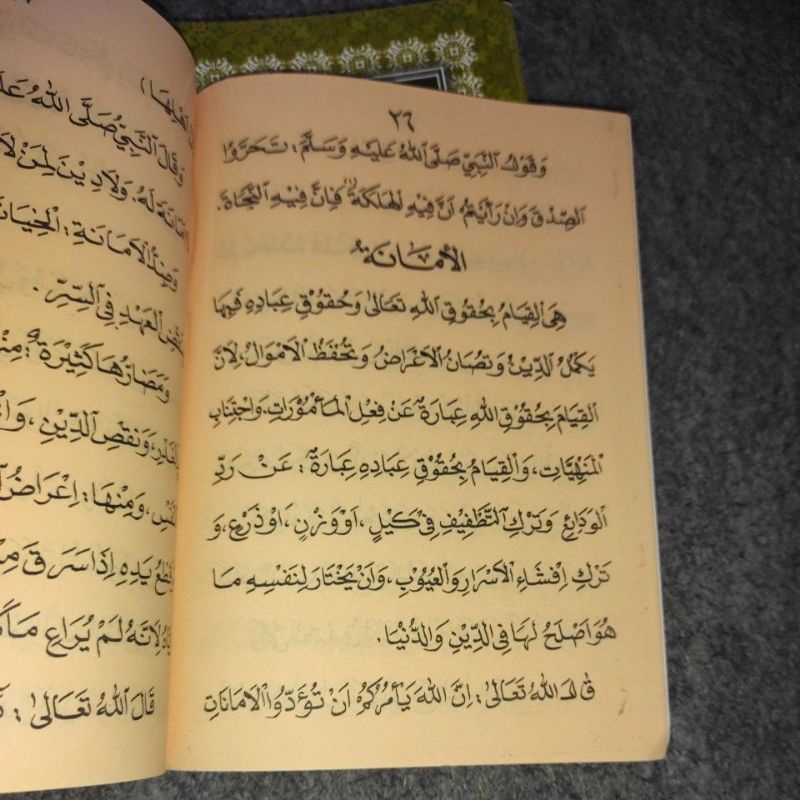 ٢٦
وَقَوْلُ النَّبِيِّ صَلَّى اللهُ عَلَيْهِ وَسَلَّمَ : تَحَرَّوُا
الصِّدْقَ وَاِنْ رَأَيْتُمْ اَنَّ فِيْهِ الْهَلَكَةَ فَاِنَّ فِيْهِ النَّجَاةَ.
الْاَمَانَةُ
هِيَ الْقِيَامُ بِحُقُوْقِ اللهِ تَعَالىٰ وَحُقُوْقِ عِبَادِهِ فَبِهَا
يَكْمُلُ الدِّيْنُ وَتُصَانُ الْاَعْرَاضُ وَتُحْفَظُ الْاَمْوَالُ، لِاَنَّ
الْقِيَامَ بِحُقُوْقِ اللهِ عِبَارَةٌ عَنْ فِعْلِ الْمَأْمُوْرَاتِ وَاجْتِنَابِ
الْمَنْهِيَّاتِ، وَالْقِيَامُ بِحُقُوْقِ عِبَادِهِ عِبَارَةٌ : عَنْ رَدِّ
الْوَدَائِعِ وَتَرْكِ التَّطْفِيْفِ فِي كَيْلٍ، اَوْ وَزْنٍ، اَوْ ذَرْعٍ، وَ
تَرْكِ اِفْشَاءِ الْاَسْرَارِ وَالْعُيُوْبِ، وَاَنْ يَخْتَارَ لِنَفْسِهِ مَا
هُوَ اَصْلَحُ لَهَا فِي الدِّيْنِ وَالدُّنْيَا.
قَالَ اللهُ تَعَالىٰ : اِنَّ اللهَ يَأْمُرُكُمْ اَنْ تُؤَدُّوا الْاَمَانَاتِ
اَهْلِهَا)
وَقَالَ النَّبِيُّ صَلَّى اللهُ
اَمَانَةَ لَهُ. وَلَا دِيْنَ لِمَنْ لَا
وَضِدُّ الْاَمَانَةِ :
الْعَهْدِ فِي السِّرِّ.
وَمَضَارُّهَا كَثِيْرَةٌ :
وَنَقْصِ الدِّيْنِ،
وَمِنْهَا : اِعْرَاضُ
يَدِهِ اِذَا سَرَقَ
لِاَنَّهُ لَمْ يُرَاعِ
قَالَ اللهُ تَعَالىٰ :